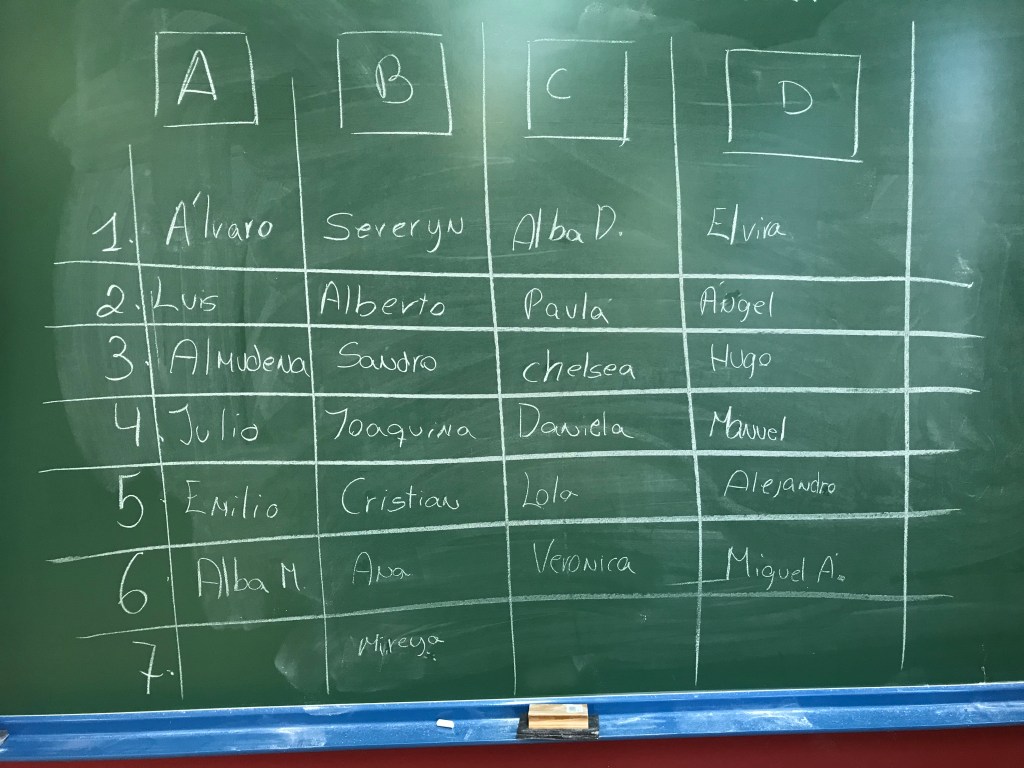 A B C D
1. Álvaro Severyn Alba D. Elvira
2. Luis Alberto Paula Ángel
3. Almudena Sandro Chelsea Hugo
4. Julio Joaquina Daniela Manuel
5 Emilio Cristian Lola Alejandro
6 Alba M. Ana Veronica Miguel A.
7. Mireya